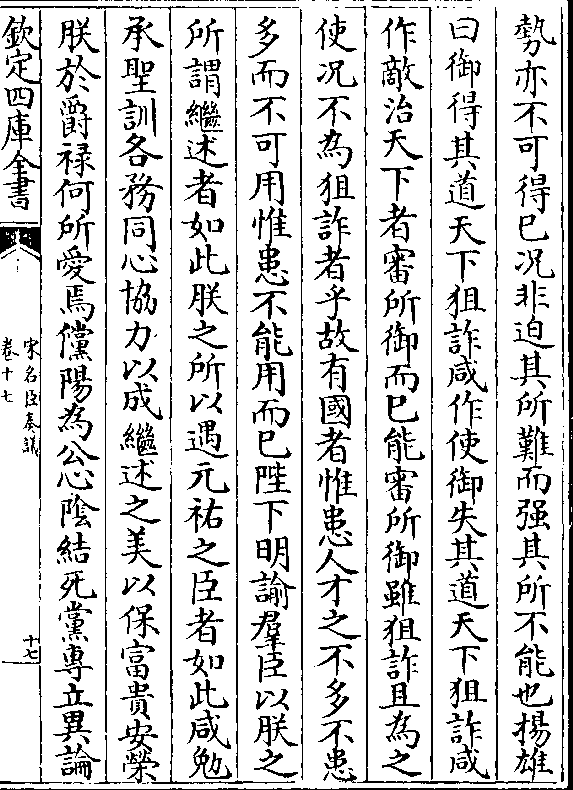 勢亦不可得已况非迫其所難而强其所不能也楊雄
曰御得其道天下狙詐咸作使御失其道天下狙詐咸
作敵治天下者審所御而已能審所御雖狙詐且為之
使况不為狙詐者乎故有國者惟患人才之不多不患
多而不可用惟患不能用而已陛下明諭羣臣以朕之
所謂繼述者如此朕之所以遇元祐之臣者如此咸勉
承聖訓各務同心協力以成繼述之美以保富貴安榮
朕於爵禄何所愛焉儻陽為公心陰結死黨專立異論
欽定四庫全書
宋名臣奏議
卷十七
十七